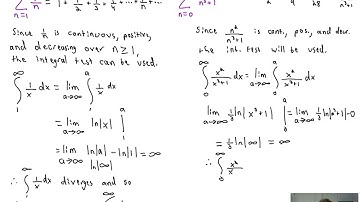 ∑ n=1 1/n = 1 + 1/2 + 1/3 + 1/4 + ... + 1/n ...
Since 1/n is continuous, positive,
and decreasing over n≥1,
the integral test can be used.
∫₁^∞ 1/x dx = lim a→∞ ∫₁^a 1/x dx
= lim a→∞ ln|x| |₁^a
= lim a→∞ ln|a| - ln|1| = ∞
ln|∞|
∴ ∫₁^∞ 1/x dx diverges and so
∑ n=0 n³+1
Since n²/n³+1 is cont., pos., and decr.
the int. test can be used.
∫₀^∞ x²/x³+1 dx = lim a→∞ ∫₀^a x²/x³+1 dx
lim a→∞ 1/3 ln|x³+1| |₀^a = lim a→∞ 1/3 ln|a³+1| - 0
= 1/3 ln|∞| = ∞
∴ ∫₀^∞ x²/x